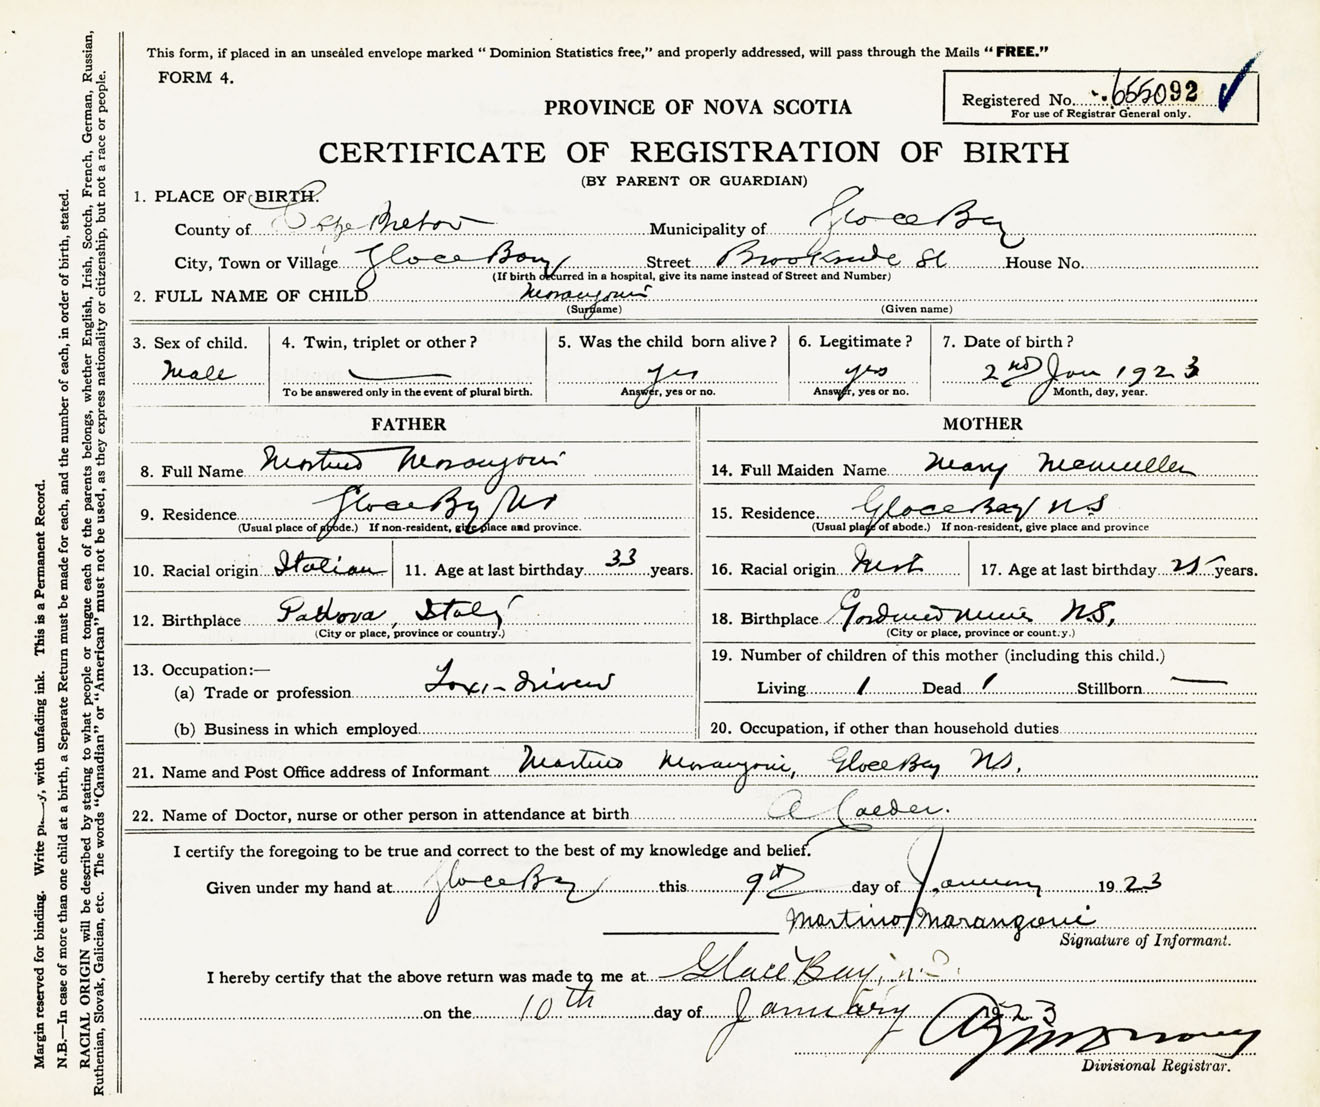 This form, if placed in an unsealed envelope marked " Dominion Statistics free," and properly addressed, will pass through the Mails "FREE."
FORM 4.
Registered No. 655092
For use of Registrar General only.
PROVINCE OF NOVA SCOTIA
CERTIFICATE OF REGISTRATION OF BIRTH
(BY PARENT OR GUARDIAN)
1. PLACE OF BIRTH.
County of Cape Breton Municipality of Glace Bay
City, Town or Village Glace Bay Street Brookside St House No.
(If birth occurred in a hospital, give its name instead of Street and Number)
2. FULL NAME OF CHILD Marangoni
(Surname) (Given name)
3. Sex of child. 4. Twin, triplet or other? 5. Was the child born alive? 6. Legitimate? 7. Date of birth?
Male yes yes 2nd Jan 1923
To be answered only in the event of plural birth. Answer, yes or no. Answer, yes or no. Month, day, year.
FATHER
8. Full Name Martino Marangoni
9. Residence Glace Bay NS
(Usual place of abode.) If non-resident, give place and province.
10. Racial origin Italian 11. Age at last birthday 33 years.
12. Birthplace Padova, Italy
(City or place, province or country.)
13. Occupation:—
(a) Trade or profession Taxi-driver
(b) Business in which employed
MOTHER
14. Full Maiden Name Mary McMullen
15. Residence Glace Bay NS
(Usual place of abode.) If non-resident, give place and province
16. Racial origin 17. Age at last birthday 25 years.
18. Birthplace N.S.
(City or place, province or country.)
19. Number of children of this mother (including this child.)
Living 1 Dead 1 Stillborn —
20. Occupation, if other than household duties
21. Name and Post Office address of Informant Martino Marangoni, Glace Bay NS.
22. Name of Doctor, nurse or other person in attendance at birth A Calder.
I certify the foregoing to be true and correct to the best of my knowledge and belief.
Given under my hand at Glace Bay this 9th day of January 1923
Martino Marangoni
Signature of Informant.
I hereby certify that the above return was made to me at Glace Bay, N.S.
on the 10th day of January 1923
Divisional Registrar.
Margin reserved for binding. Write , with unfading ink. This is a Permanent Record.
N.B.—In case of more than one child at a birth, a Separate Return must be made for each, and the number of each, in order of birth, stated.
RACIAL ORIGIN will be described by stating to what people or tongue each of the parents belongs, whether English, Irish, Scotch, French, German, Russian,
Ruthenian, Slovak, Galician, etc. The words "Canadian" or "American" must not be used, as they express nationality or citizenship, but not a race or people.